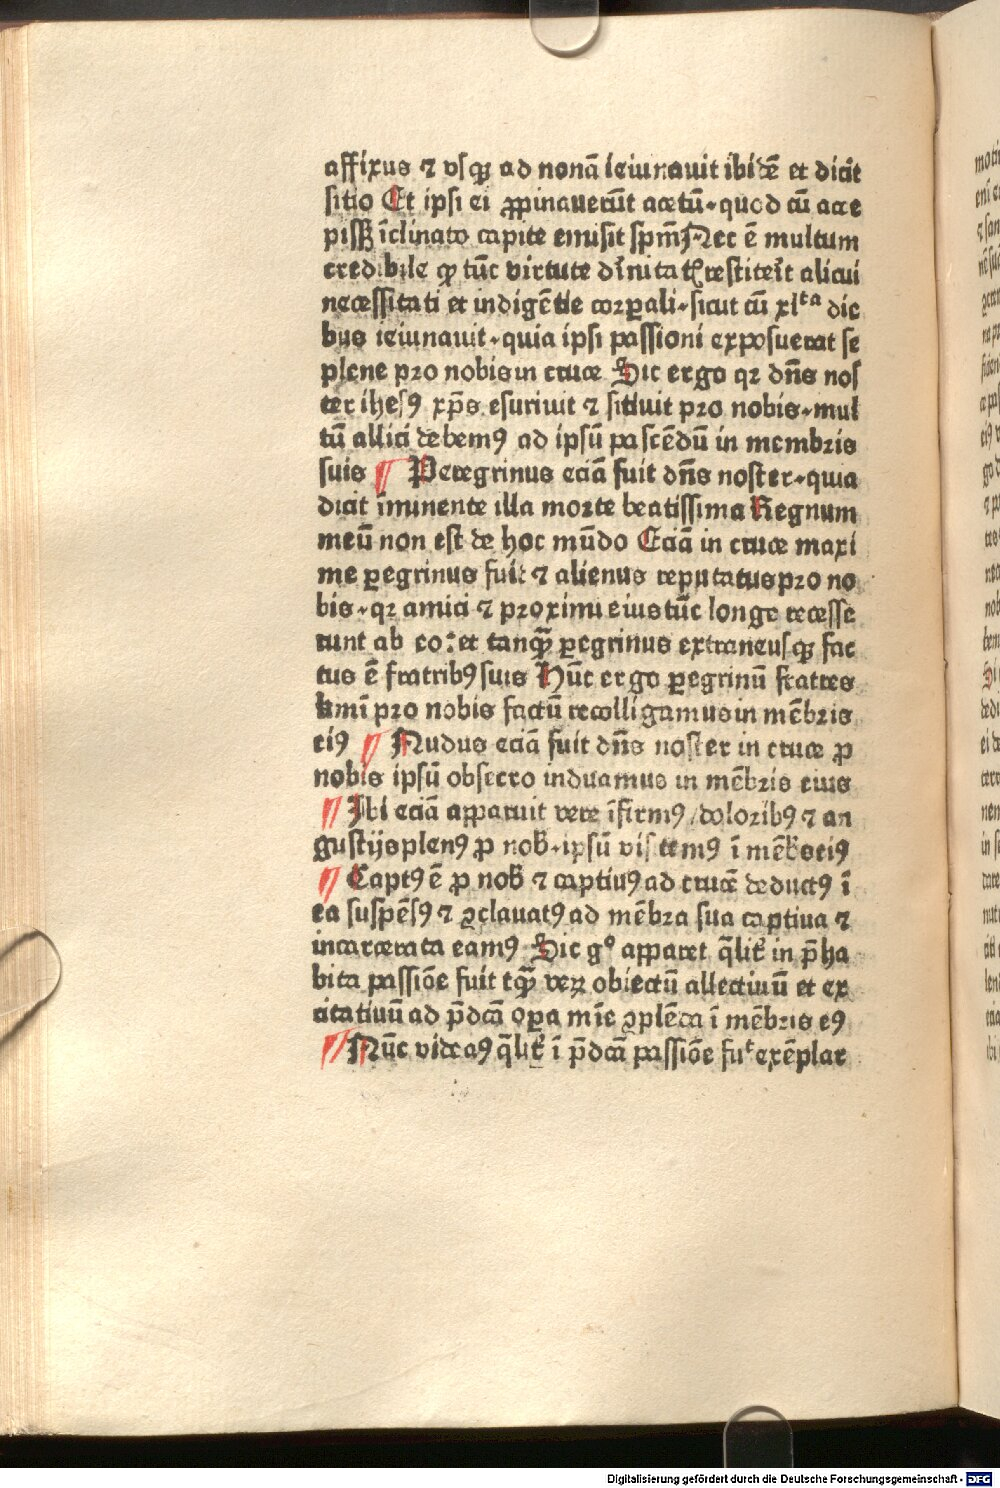 affixus ⁊ vsqꝫ ad nonā ieiunauit ibidē et dicit
sitio Et ipsi ei ꝓpinauerūt acetū·quod cū acce
pissꝫ īclinato capite emisit spm̄ Nec ē multum
credibile ꝙ tūc virtute diīnitatꝭ restiterīt alicui
necessitati et indigētie corꝑali·sicut cū xlᵗᵃ die
bus ieiunauit·quia ipsi passioni exposuerat se
plene pro nobis in cruce Sic ergo qꝛ dn̄s nos
ter ihesꝰ xp̄s esuriuit ⁊ sitiuit pro nobis·mul
tū allici debemꝰ ad ipsū pascēdū in membris
suis ¶ Peregrinus eciā fuit dn̄s noster·quia
dicit īminente illa morte beatissima Regnum
meū non est de hoc mūdo Eciā in cruce maxi
me ꝑegrinus fuit ⁊ alienus reputatus pro no
bis·qꝛ amici ⁊ proximi eius tūc longe recesse
runt ab eo: et tanqꝫ̄ ꝑegrinus extraneusqꝫ fac
tus ē fratribꝰ suis Hūc ergo ꝑegrinū fratres
kmī pro nobis factū recolligamus in mēbris
eiꝰ ¶ Nudus eciā fuit dn̄s noster in cruce ꝓ
nobis ipsū obsecro induamus in mēbris eius
¶ Ibi eciā apparuit vere īfirmꝰ/doloribꝰ ⁊ an
gustijs plenꝰ ꝓ nob̄·ipsū visitemꝰ ī mēbꝭs eiꝰ
¶ Captꝰ ē ꝓ nob̄ ⁊ captiuꝰ ad crucē deductꝰ ī
ea suspēsꝰ ⁊ ꝯclauatꝰ ad mēbra sua captiua ⁊
incarcerata eamꝰ Sic gᵒ apparet q̄lit̄ in p̄ha
bita passiōe fuit tqꝫ̄ veꝝ obiectū allectiuū et ex
citatiuū ad p̄dcā oꝑa mīe ꝯplēda ī mēbris eꝰ
¶ Nūc videaꝰ q̄lit̄ ī p̄dcā passiōe fuᵗ exēplar
Digitalisierung gefördert durch die Deutsche Forschungsgemeinschaft - DFG